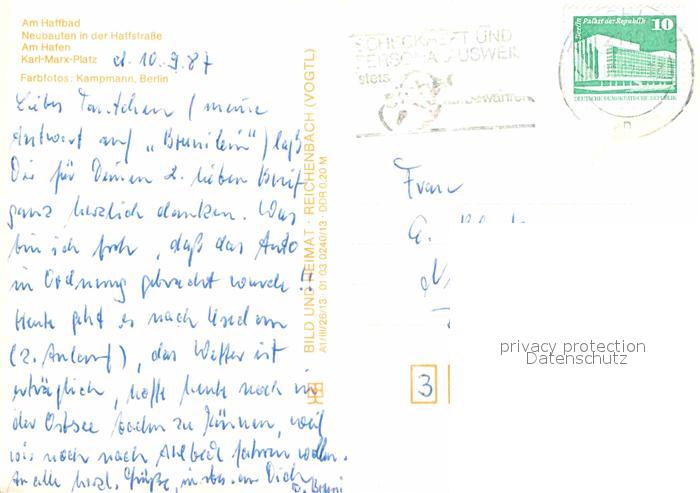 Am Haffbad
Neubauten in der Haffstraße
Am Hafen
Karl-Marx-Platz
d. 10.9.87
Farbfotos: Kampmann, Berlin
Liebes Tantchen (meine
Antwort auf „Brunilein") laß
Dir für Deinen 2. lieben Brief
ganz herzlich danken. Was
bin ich froh, daß das Auto
in Ordnung gebracht wurde!!
Heute geht es nach Usedom
(2. Anlauf), das Wetter ist
erträglich, hoffe heute noch in
der Ostsee baden zu können, weil
wir noch nach Ahlbeck fahren wollen.
An alle herzl. Grüße, insbes. an Dich
BILD UND HEIMAT · REICHENBACH (VOGTL)
A1/III/26/13 · 01 03 0240/13 · DDR 0,20 M
SCHECKHEFT UND
PERSONALAUSWEIS
stets
bewahren
Berlin Palast der Republik
10
DEUTSCHE DEMOKRATISCHE REPUBLIK
Frau
privacy protection
Datenschutz
3